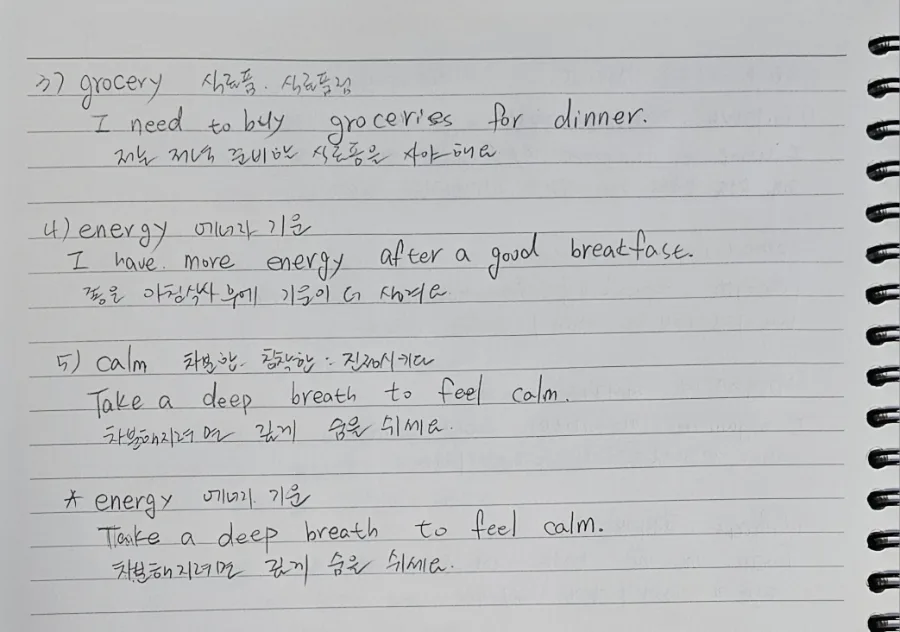 3) grocery 식료품. 식료품점
I need to buy groceries for dinner.
저는 저녁 준비할 식료품을 사야 해요
4) energy 에너지 기운
I have more energy after a good breakfast.
좋은 아침식사 후에 기운이 더 생겨요
5) calm 차분한. 침착한: 진정시키다
Take a deep breath to feel calm.
차분해지려면 깊게 숨을 쉬세요.
* energy 에너지. 기운
Take a deep breath to feel calm.
차분해지려면 깊게 숨을 쉬세요.